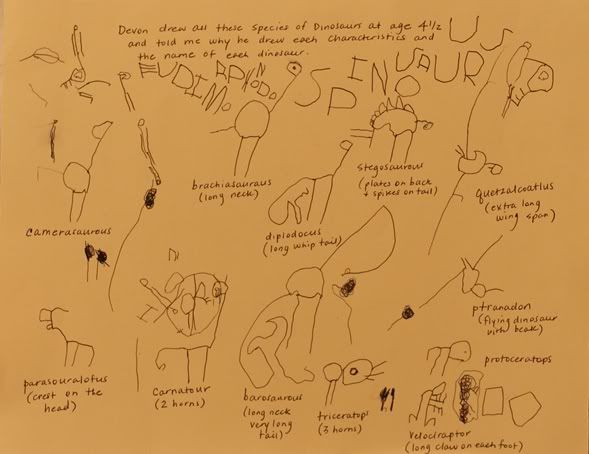 Devon drew all these species of Dinosaurs at age 4 1/2
and told me why he drew each characteristics and
the name of each dinosaur.
SPINOSAURUS
brachiasaurus
(long neck)
stegosaurous
(plates on back
+ spikes on tail)
Quetzalcoatlus
(extra long
wing span)
camerasaurous
diplodocus
(long whip tail)
ptranadon
(flying dinosaur
with beak)
parasouralotus
(crest on the
head)
Carnatour
(2 horns)
barosaurous
(long neck
very long
tail)
triceratops
(3 horns)
protoceratops
velociraptor
(long claw on each foot)